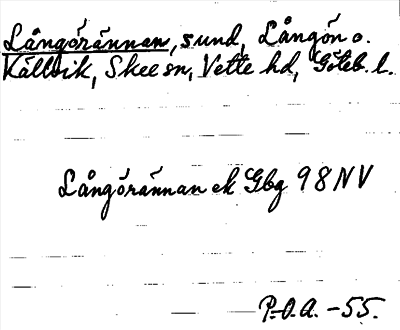 Långörännan, sund, Långön o.
Källvik, Skee sn, Vette hd, Göteb. l.
Långörännan ek Gbg 98 NV
P.O.A. -55.